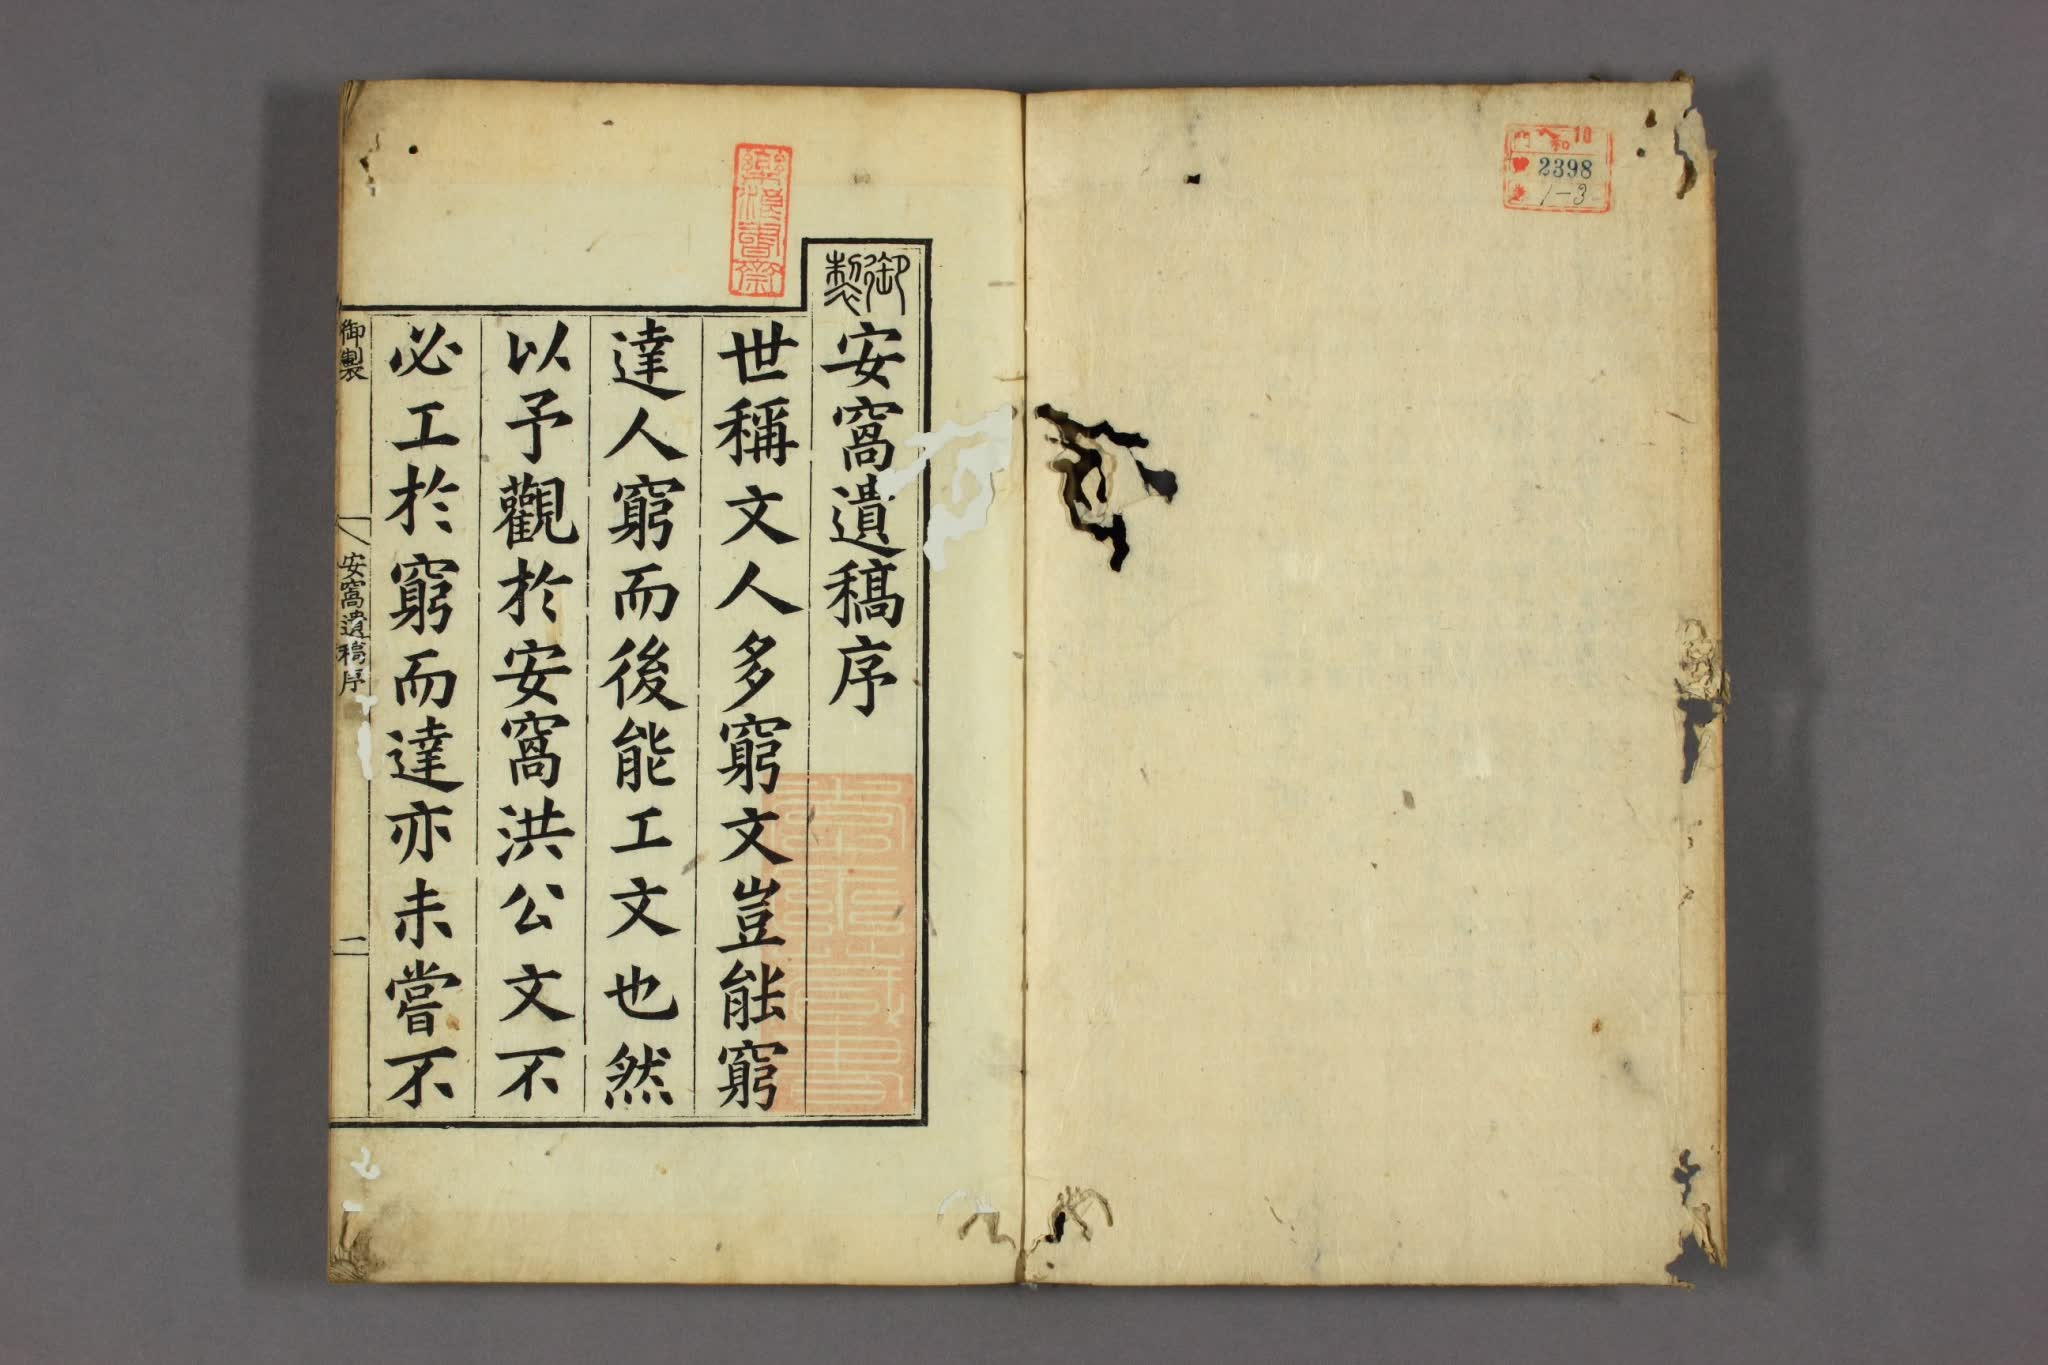 門 和 10
2398
1-3
御製安窩遺稿序
世稱文人多窮文豈能窮
達人窮而後能工文也然
以予觀於安窩洪公文不
必工於窮而達亦未嘗不
御製
安窩遺稿序
一